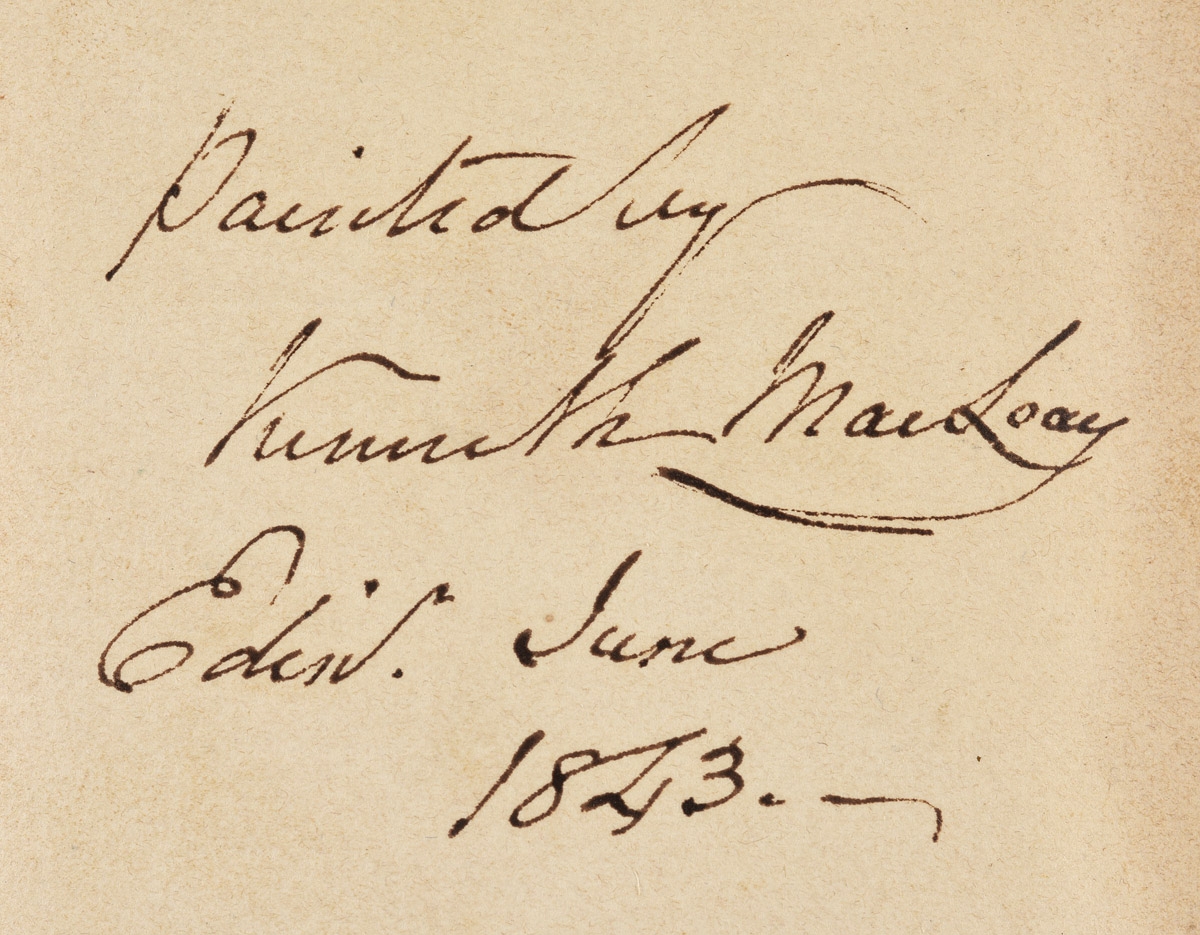 Painted by
Kenneth MacLeay
Edinr. June
1843. —